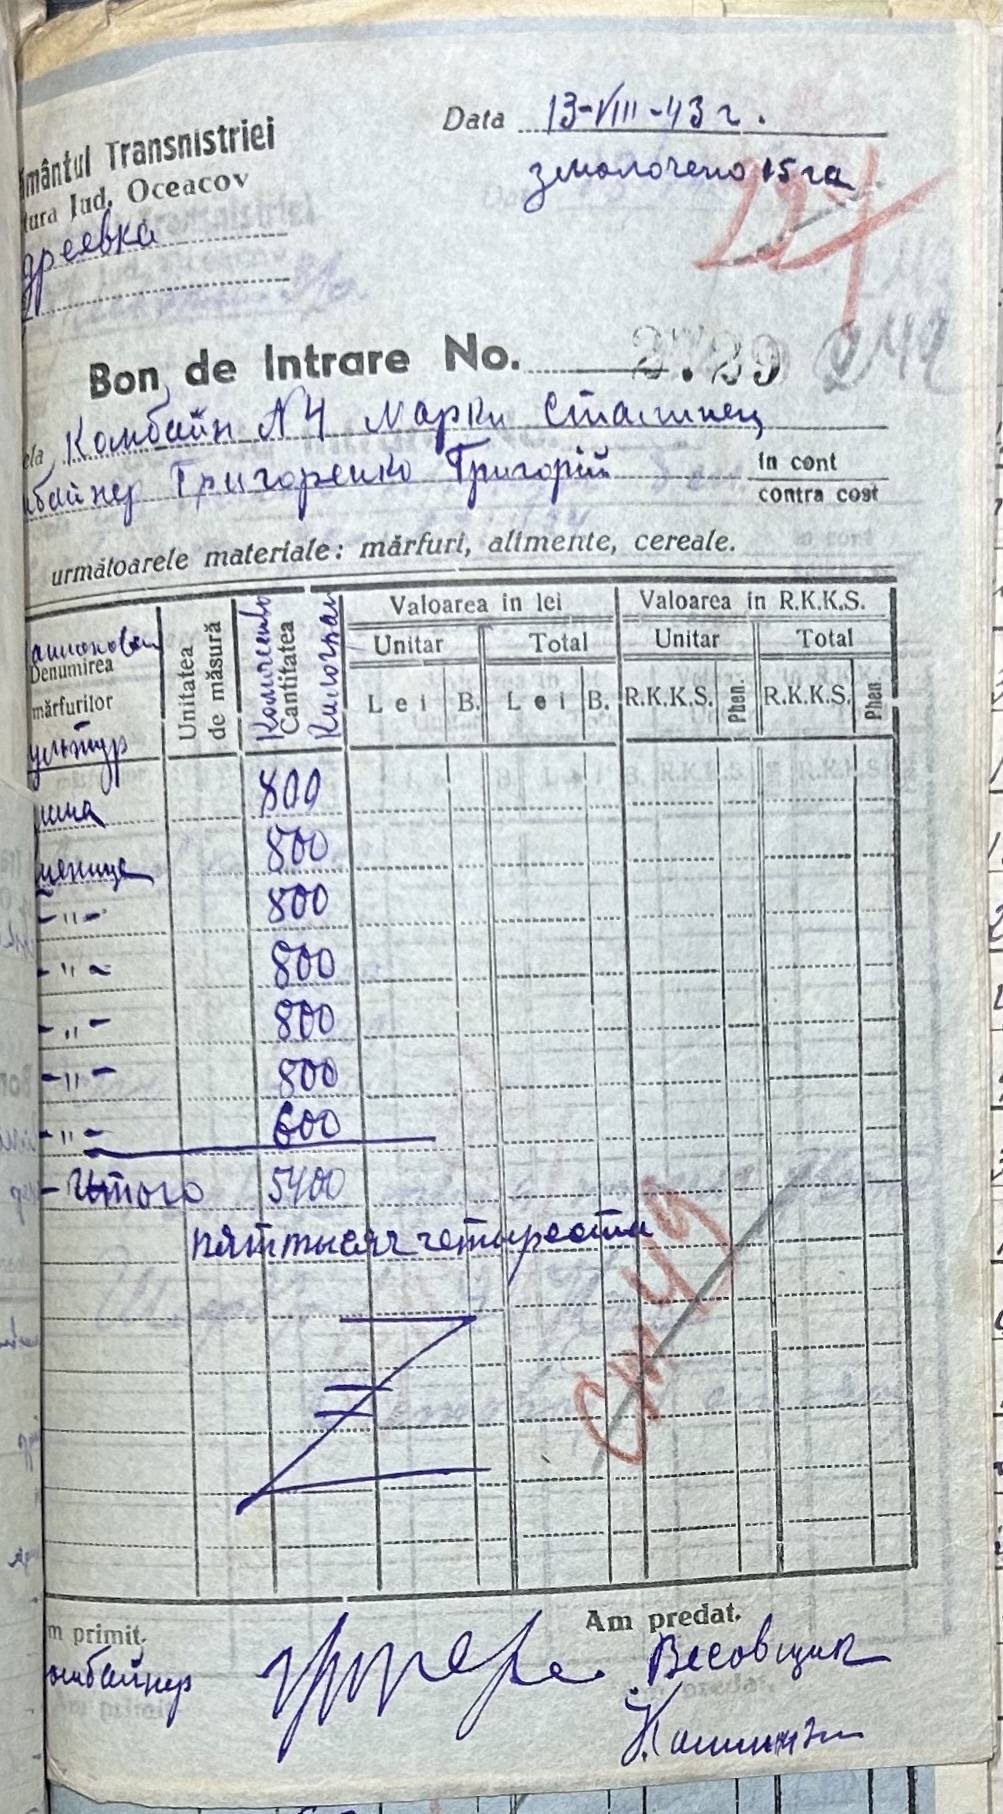 mântul Transnistriei
tura Jud. Oceacov
дреевка
Data 13-VIII-43 г.
змолочено 15 га
Bon de Intrare No. 2739
ela Комбайн N4 марки Сталинец
мбайнер Григоренко Григорій
in cont
contra cost
următoarele materiale: mărfuri, alimente, cereale.
Denumirea
mărfurilor
культур
Unitatea
de măsură
Количество
Cantitatea
Килограм
Valoarea in lei
Valoarea in R.K.K.S.
Unitar Total Unitar Total
Lei B. Lei B. R.K.K.S. Phen. R.K.K.S. Phen
800
шеница 800
-"- 800
-"- 800
-"- 800
-"- 800
-"- 600
- Итого 5400
пятьтысяч четыреста
m primit.
омбайнер
Am predat.
Весовщик